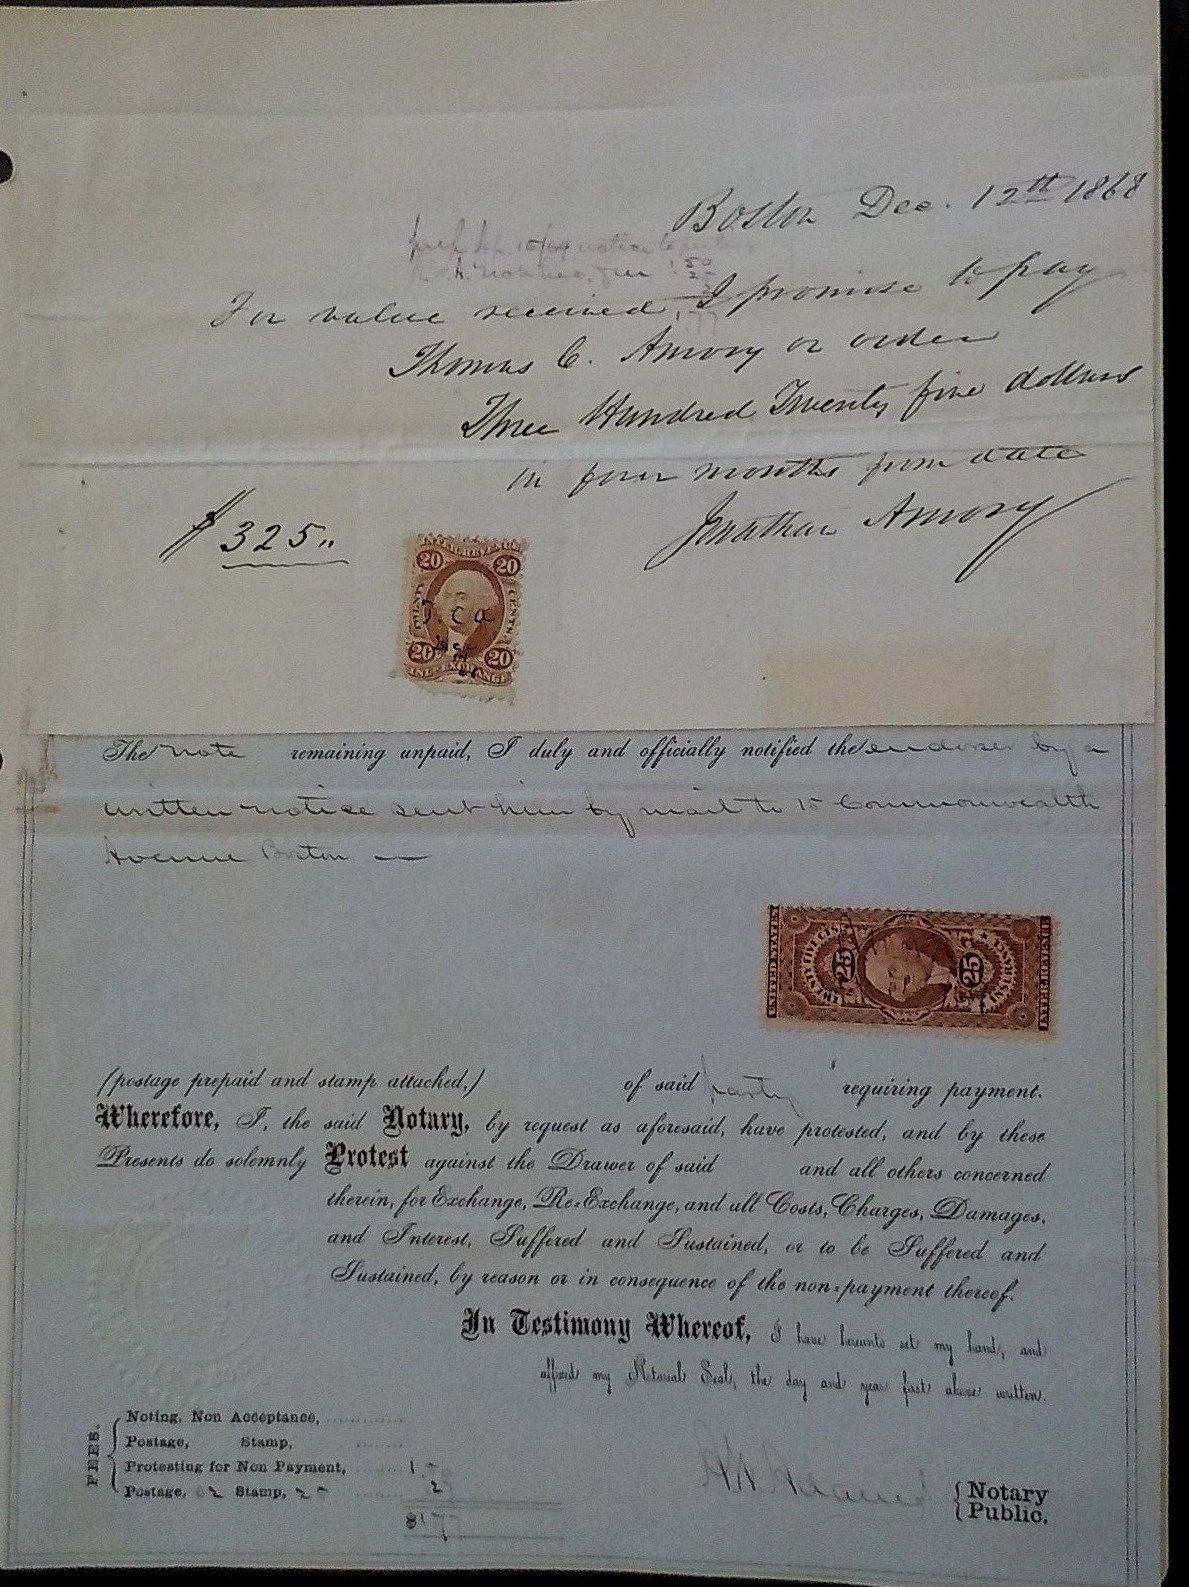 Boston Dec. 12th 1868
For value received, I promise to pay
Thomas C. Amory or order
Three Hundred Twenty five dollars
in four months from date
Jonathan Amory
$ 325..
INTER. REVENUE
20 20
TWENTY CENTS
T. C. A
20 20
INL. EXCHANGE
The note remaining unpaid, I duly and officially notified the endorser by a
written notice sent him by mail to 15 Commonwealth
Avenue Boston —
UNITED STATES
TWENTY FIVE CTS
25 25
INSURANCE
INTER. REVENUE
(postage prepaid and stamp attached,) of said party requiring payment.
Wherefore, I, the said Notary, by request as aforesaid, have protested, and by these
Presents do solemnly Protest against the Drawer of said and all others concerned
therein, for Exchange, Re-Exchange, and all Costs, Charges, Damages,
and Interest, Suffered and Sustained, or to be Suffered and
Sustained, by reason or in consequence of the non-payment thereof.
In Testimony Whereof, I have hereunto set my hand, and
affixed my Notarial Seal, the day and year first above written.
FEES.
Noting, Non Acceptance,
Postage, Stamp,
Protesting for Non Payment, 1
Postage, 02 Stamp, 25 2
$1 77
Notary
Public.